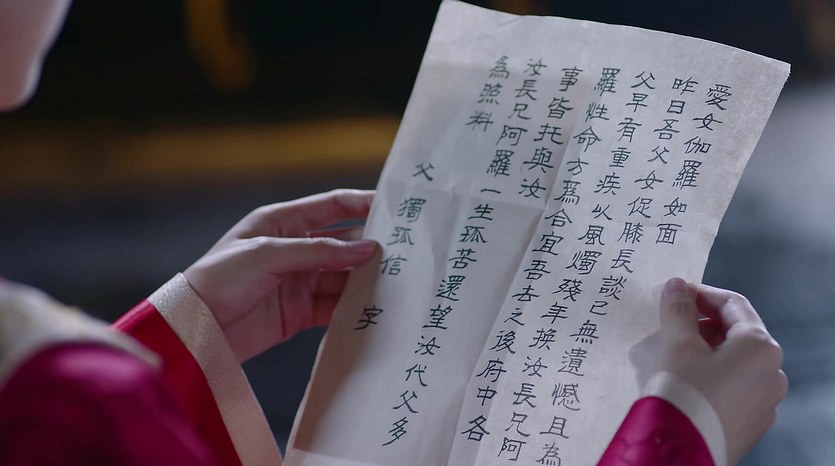 愛女伽羅如面
昨日吾父女促膝長談己無遺憾且為
父早有重疾以風燭殘年換汝長兄阿
羅性命方為合宜吾去之後府中各
事皆托與汝
汝長兄阿羅一生孤苦還望汝代父多
為照料
父 獨孤信 字